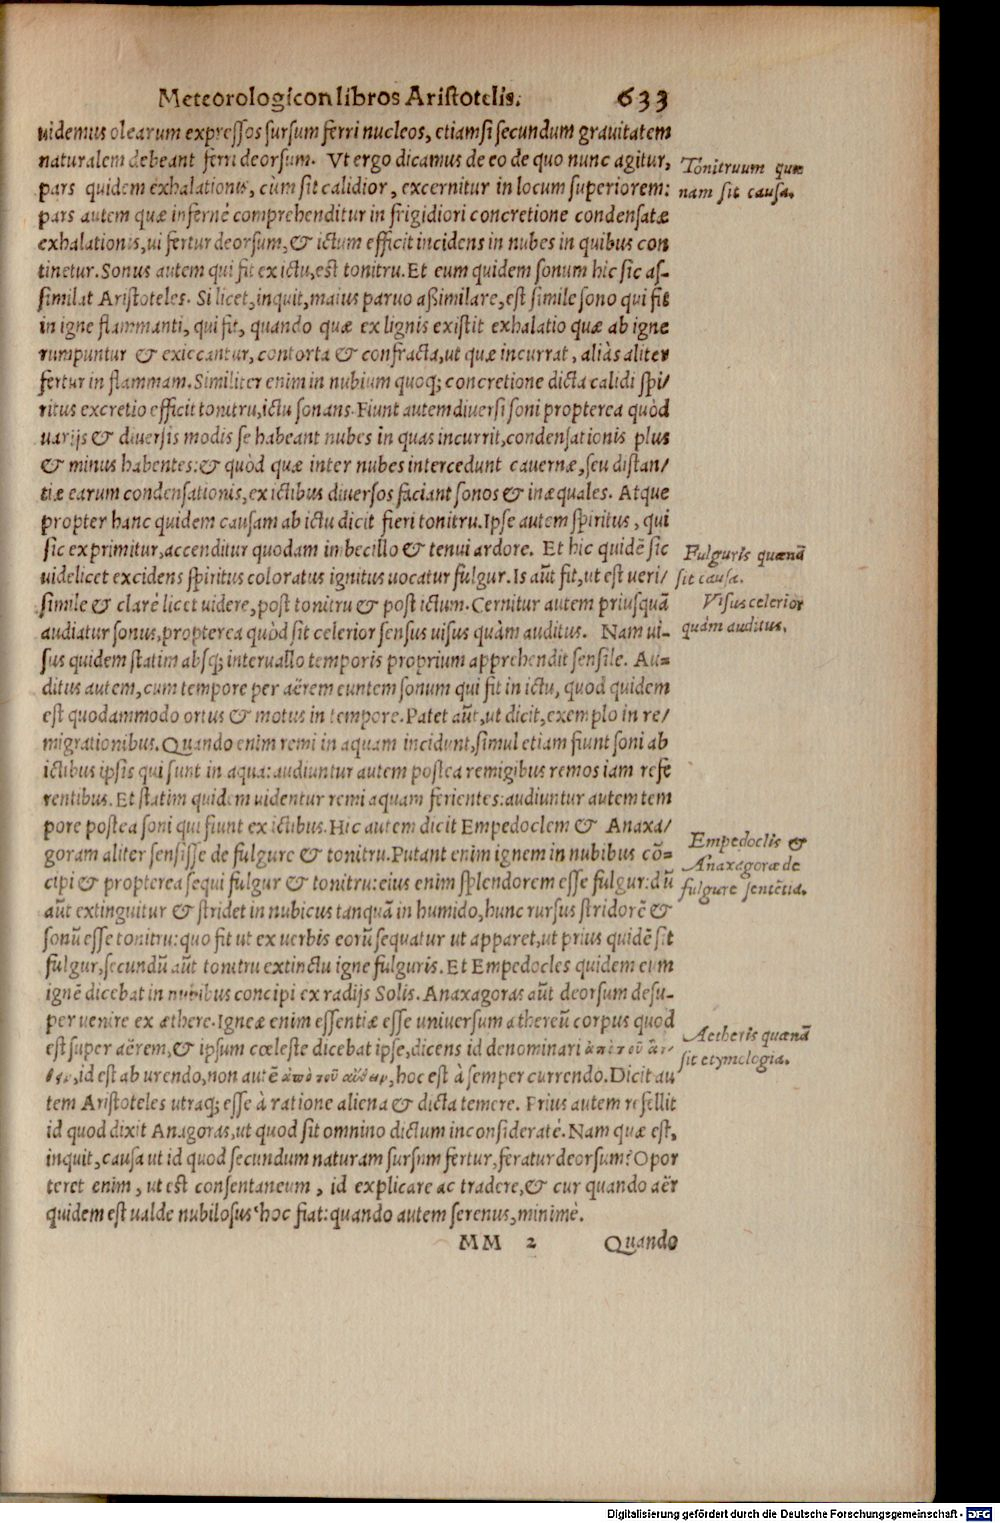 Meteorologicon libros Aristotelis. 633
uidemus olearum expressos sursum ferri nucleos, etiamsi secundum grauitatem
naturalem debeant ferri deorsum. Vt ergo dicamus de eo de quo nunc agitur,
pars quidem exhalationis, cùm sit calidior, excernitur in locum superiorem:
pars autem quæ infernè comprehenditur in frigidiori concretione condensatæ
exhalationis, ui fertur deorsum, & ictum efficit incidens in nubes in quibus con
tinetur. Sonus autem qui fit ex ictu, est tonitru. Et eum quidem sonum hic sic as-
similat Aristoteles. Si licet, inquit, maius paruo aßimilare, est simile sono qui fit
in igne flammanti, qui fit, quando quæ ex lignis existit exhalatio quæ ab igne
rumpuntur & exiccantur, contorta & confracta, ut quæ incurrat, aliàs aliter
fertur in flammam. Similiter enim in nubium quoq; concretione dicta calidi spi/
ritus excretio efficit tonitru, ictu sonans. Fiunt autem diuersi soni propterea quòd
uarijs & diuersis modis se habeant nubes in quas incurrit, condensationis plus
& minus habentes: & quòd quæ inter nubes intercedunt cauernæ, seu distan/
tiæ earum condensationis, ex ictibus diuersos faciant sonos & inæquales. Atque
propter hanc quidem causam ab ictu dicit fieri tonitru. Ipse autem spiritus, qui
sic exprimitur, accenditur quodam imbecillo & tenui ardore. Et hic quidē sic
uidelicet excidens spiritus coloratus ignitus uocatur fulgur. Is aūt fit, ut est ueri/
simile & clarè licet uidere, post tonitru & post ictum. Cernitur autem priusquā
audiatur sonus, propterea quòd sit celerior sensus uisus quàm auditus. Nam ui-
sus quidem statim absq; interuallo temporis proprium apprehendit sensile. Au=
ditus autem, cum tempore per aërem euntem sonum qui fit in ictu, quod quidem
est quodammodo ortus & motus in tempore. Patet aūt, ut dicit, exemplo in re/
migrationibus. Quando enim remi in aquam incidunt, simul etiam fiunt soni ab
ictibus ipsis qui sunt in aqua: audiuntur autem postea remigibus remos iam refe
rentibus. Et statim quidem uidentur remi aquam ferientes: audiuntur autem tem
pore postea soni qui fiunt ex ictibus. Hic autem dicit Empedoclem & Anaxa/
goram aliter sensisse de fulgure & tonitru. Putant enim ignem in nubibus cō=
cipi & propterea sequi fulgur & tonitru: eius enim splendorem esse fulgur: dū
aūt extinguitur & stridet in nubicus tanquā in humido, hunc rursus stridorē &
sonū esse tonitru: quo fit ut ex uerbis eorū sequatur ut apparet, ut prius quidē sit
fulgur, secundū aūt tonitru extinctu igne fulguris. Et Empedocles quidem eum
ignē dicebat in nubibus concipi ex radijs Solis. Anaxagoras aūt deorsum desu-
per uenire ex æthere. Igneæ enim essentiæ esse uniuersum æthereū corpus quod
est super aërem, & ipsum cœleste dicebat ipse, dicens id denominari ἀπὸ τοῦ
id est ab urendo, non autē ἀπὸ τοῦ, hoc est à semper currendo. Dicit au
tem Aristoteles utraq; esse à ratione aliena & dicta temere. Prius autem refellit
id quod dixit Anagoras, ut quod sit omnino dictum inconsideratè. Nam quæ est,
inquit, causa ut id quod secundum naturam sursum fertur, feratur deorsum? Opor
teret enim, ut est consentaneum, id explicare ac tradere, & cur quando aër
quidem est ualde nubilosus hoc fiat: quando autem serenus, minimè.
MM 2 Quando
Tonitruum quæ
nam sit causa.
Fulguris quænā
sit causa.
Visus celerior
quàm auditus.
Empedoclis &
Anaxagoræ de
fulgure sentētia.
Aetheris quænā
sit etymologia.
Digitalisierung gefördert durch die Deutsche Forschungsgemeinschaft - DFG